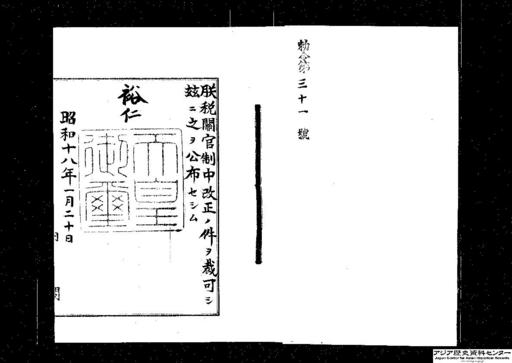 勅令第三十一號
朕税關官制中改正ノ件ヲ裁可シ
玆ニ之ヲ公布セシム
裕仁
天皇御璽
昭和十八年一月二十日
アジア歴史資料センター
Japan Center for Asian Historical Records